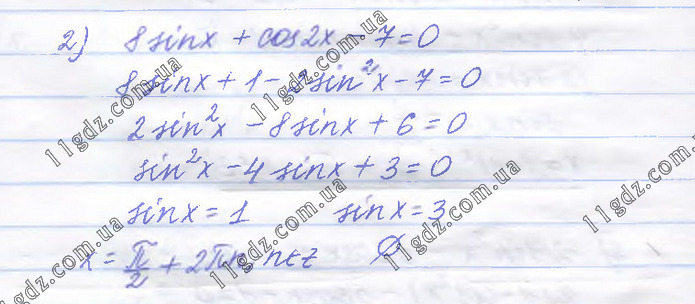 2) 8sinx + cos2x - 7 = 0
8sinx + 1 - 2sin²x - 7 = 0
2sin²x - 8sinx + 6 = 0
sin²x - 4sinx + 3 = 0
sinx = 1 sinx = 3
x = π/2 + 2πn, n∈z ∅
11gdz.com.ua
11gdz.com.ua
11gdz.com.ua
11gdz.com.ua
11gdz.com.ua
11gdz.com.ua